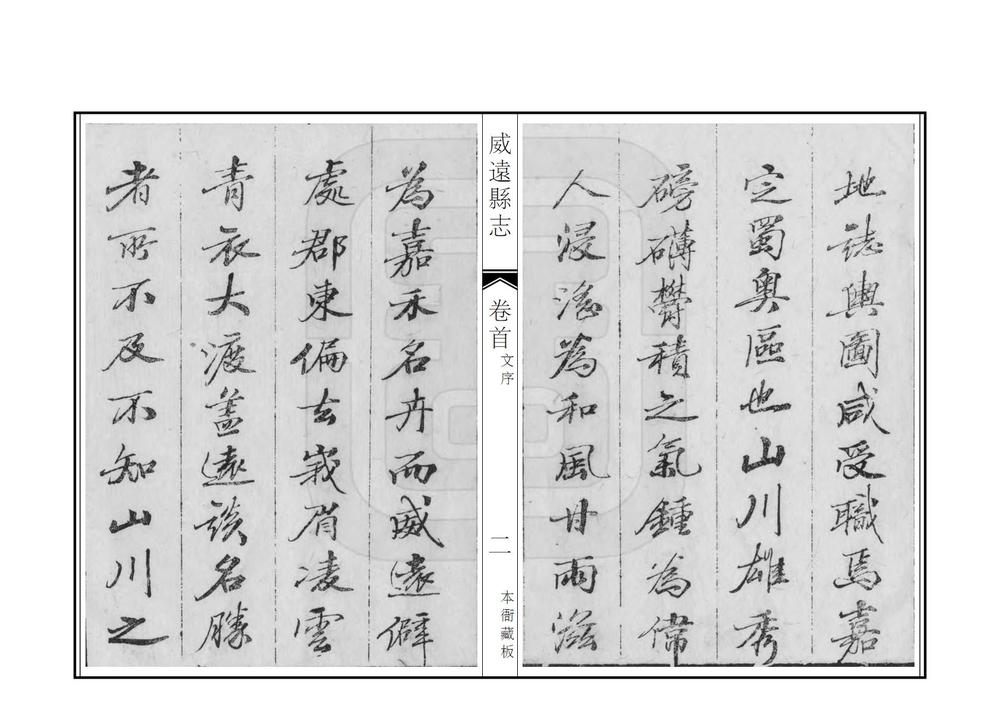 地誌輿圖咸受職焉嘉
定蜀奧區也山川雄秀
磅礴欝積之氣鍾為偉
人浸滛為和風甘雨滋
威遠縣志
卷首
文序
二
本衙藏板
為嘉禾名卉而威遠僻
處郡東偏去峩眉凌雲
青衣大渡葢遠談名勝
者所不及不知山川之